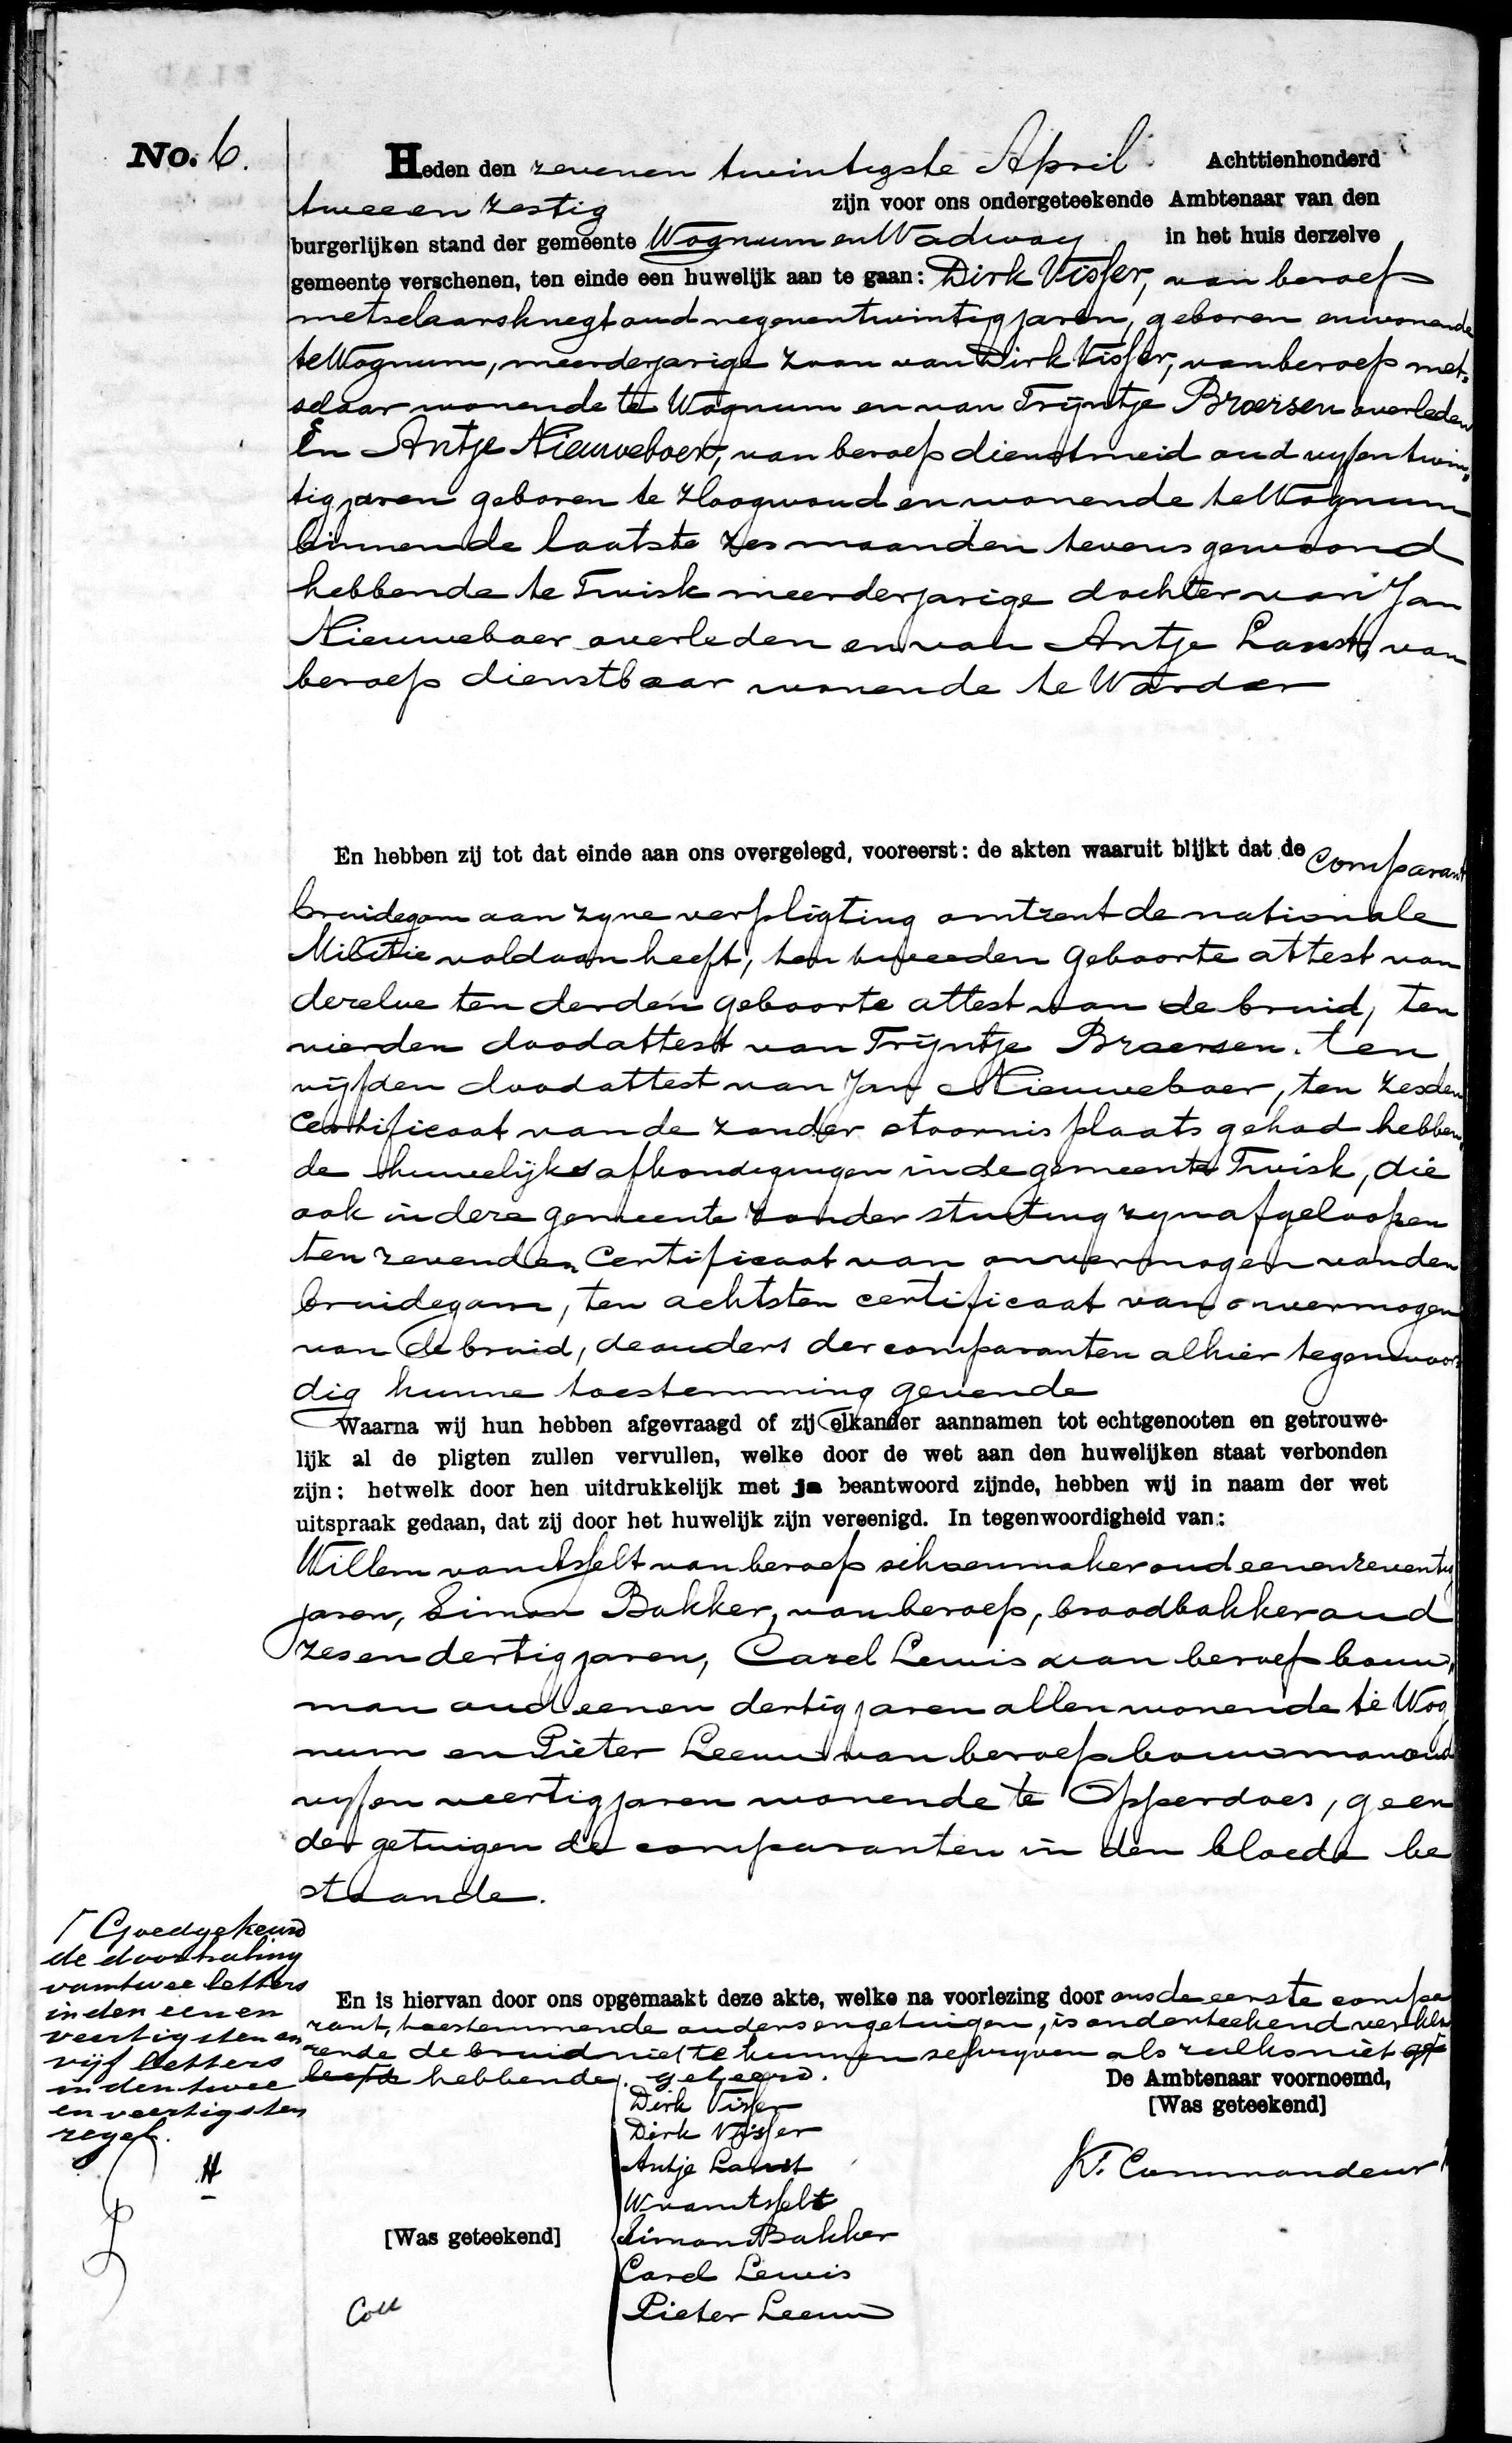 No. 6.
Heden den zevenen twintigste April Achttienhonderd
tweeen zestig zijn voor ons ondergeteekende Ambtenaar van den
burgerlijken stand der gemeente Wognum en Wadway in het huis derzelve
gemeente verschenen, ten einde een huwelijk aan te gaan: Dirk Visser, van beroep
metselaarsknegt oud negenentwintig jaren, geboren en wonende
te Wognum, meerderjarige zoon van Dirk Visser, van beroep met„
selaar wonende te Wognum en van Trijntje Broersen overleden
En Antje Nieuweboer, van beroep dienstmeid oud vyfentwin„
tig jaren geboren te Hoogwoud en wonende te Wognum
binnen de laatste zes maanden tevens gewoond
hebbende te Twisk meerderjarige dochter van Jan
Nieuweboer overleden en van Antje Lanst, van
beroep dienstbaar wonende te Warder
En hebben zij tot dat einde aan ons overgelegd, vooreerst: de akten waaruit blijkt dat de comparant
bruidegom aan zyne verpligting omtrent de nationale
Militie voldaan heeft, ten tweeden geboorte attest van
dezelve ten derden geboorte attest van de bruid, ten
vierden doodattest van Trijntje Broersen. ten
vijfden doodattest van Jan Nieuweboer, ten zesden
Certificaat van de zonder stoornis plaats gehad hebben„
de huwelijks afkondigingen in de gemeente Twisk, die
ook in deze gemeente zonder stuiting zyn afgeloopen
ten zevenden Certificaat van onvermogen van den
bruidegom, ten achtsten certificaat van onvermogen
van de bruid, de ouders der comparanten alhier tegenwoor
dig hunne toestemming gevende
Waarna wij hun hebben afgevraagd of zij elkander aannamen tot echtgenooten en getrouwe-
lijk al de pligten zullen vervullen, welke door de wet aan den huwelijken staat verbonden
zijn: hetwelk door hen uitdrukkelijk met ja beantwoord zijnde, hebben wij in naam der wet
uitspraak gedaan, dat zij door het huwelijk zijn vereenigd. In tegenwoordigheid van:
Willem van van beroep schoenmaker oud eenenzeventig
jaren, Simon Bakker, van beroep, broodbakker oud
zesendertig jaren, Carel Lewis van beroep bouw„
man oud eenen dertig jaren allen wonende te Wog
num en Pieter Leeuw van beroep bouwman oud
vyfen veertig jaren wonende te Opperdoes, geen
der getuigen de comparanten in den bloede be
staande.
⌈ Goedgekeurd
de doorhaling
van twee letters
in den eenen
veertigsten en
vijf letters
in den twee
en veertigsten
regel.
H
En is hiervan door ons opgemaakt deze akte, welke na voorlezing door ons de eerste compa
rant, toestemmende ouders en getuigen, is onderteekend verkla
rende de bruid niet te kunnen schryven als zulks niet ge
leerde hebbende. geleerd.
De Ambtenaar voornoemd,
[Was geteekend]
K. Commandeur
[Was geteekend]
Dirk Visser
Dirk Visser
Antje Lanst
Simon Bakker
Carel Lewis
Pieter Leeuw
Coll